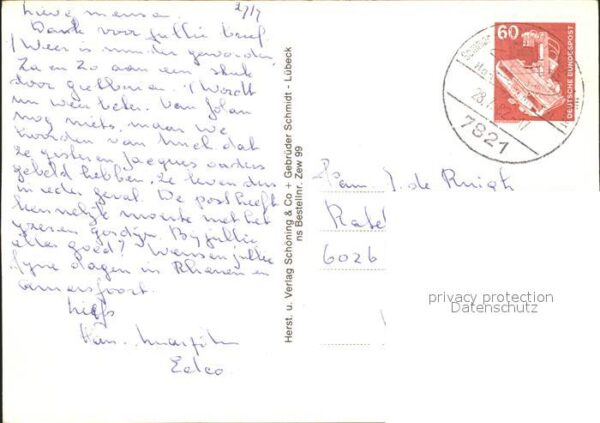 Lieve mensen 27/7
Dank voor jullie brief.
Weer is minder geworden.
Zo en zo aan een stuk
door geklommen. Wordt
nu weer beter. Van Johan
nog niets, maar we
hoorden van huis dat
ze gisteren Jacques
gebeld hebben. Ze leven dus
in ieder geval. De post heeft
kennelijk moeite met het
gordijn. Bij jullie
alles goed? Wensen jullie
fijne dagen in Rhenen en
Amersfoort.
Liefs
Eelco
Herst. u. Verlag Schöning & Co + Gebrüder Schmidt - Lübeck
ns Bestellnr. Zew 99
60
DEUTSCHE BUNDESPOST
28.7.
7821
Fam. J. de Ruigh
6026
privacy protection
Datenschutz